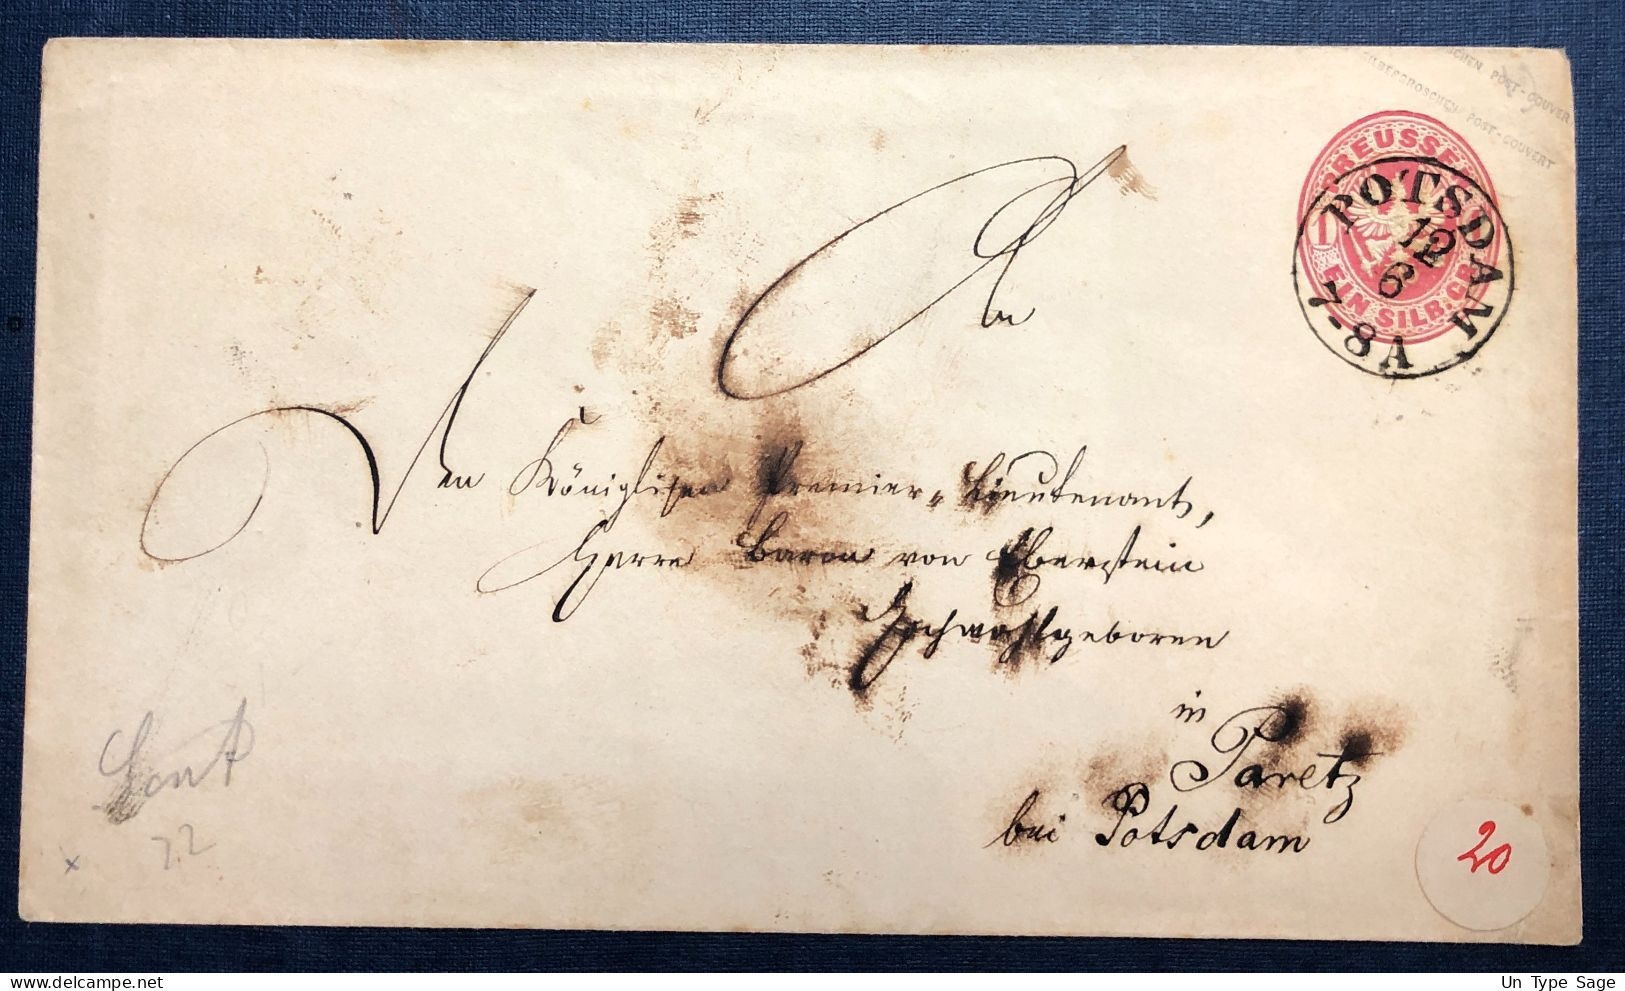 POST-COUVER
SILBERGROSCHEN POST-COUVERT
PREUSSE
EIN SILB.GR.
POTSDAM
12
6
7-8A
An
den Königlichen Premier-Lieutenant,
Herrn Baron von Eberstein
Hochwohlgeboren
in
Paretz
bei Potsdam
72
x
20
Un Type Sage